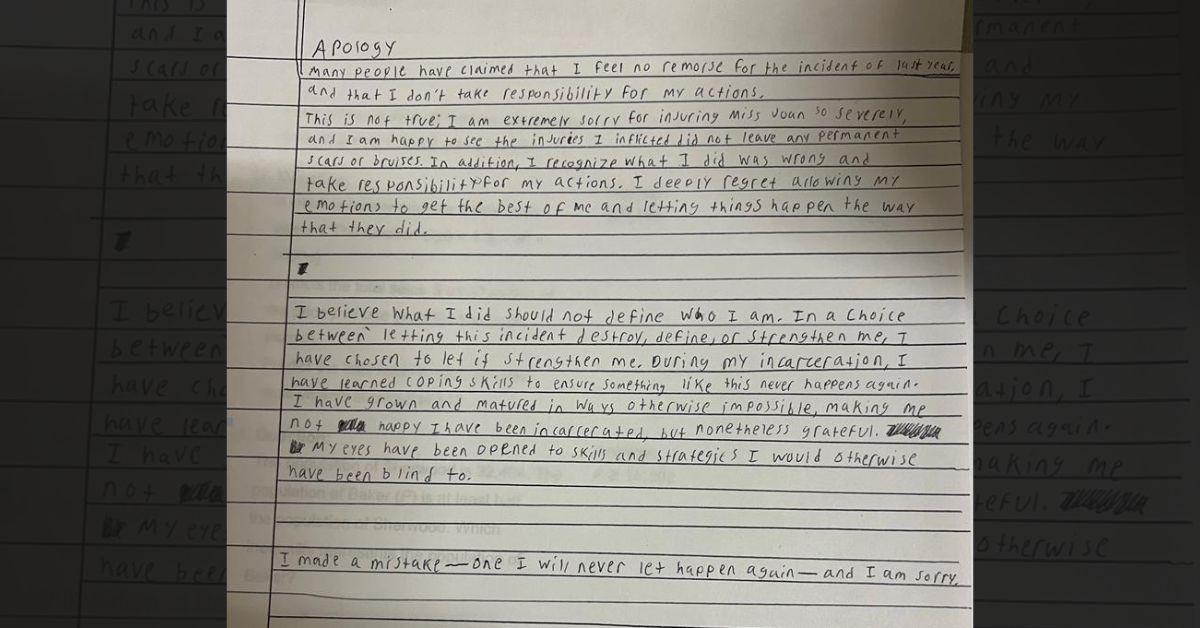 Apology
Many people have claimed that I feel no remorse for the incident of last year,
and that I don't take responsibility for my actions.
This is not true; I am extremely sorry for injuring Miss Joan so severely,
and I am happy to see the injuries I inflicted did not leave any permanent
scars or bruises. In addition, I recognize what I did was wrong and
take responsibility for my actions. I deeply regret allowing my
emotions to get the best of me and letting things happen the way
that they did.
I believe what I did should not define who I am. In a choice
between letting this incident destroy, define, or strengthen me, I
have chosen to let it strengthen me. During my incarceration, I
have learned coping skills to ensure something like this never happens again.
I have grown and matured in ways otherwise impossible, making me
not happy I have been incarcerated, but nonetheless grateful.
My eyes have been opened to skills and strategies I would otherwise
have been blind to.
I made a mistake—one I will never let happen again—and I am sorry.